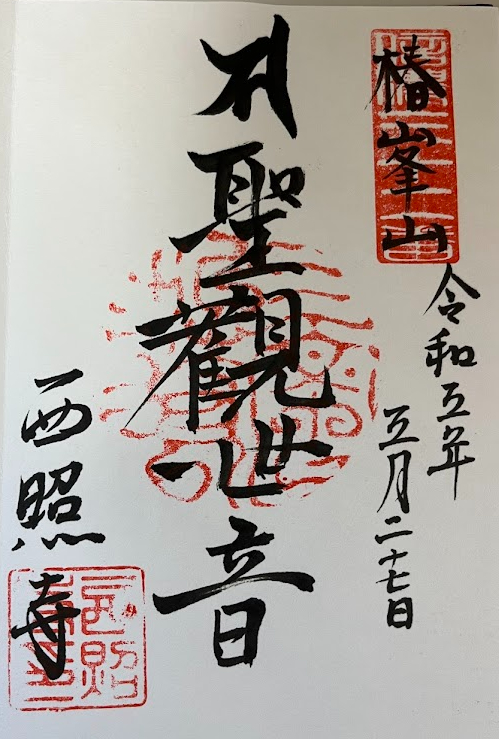 椿峯山
令和五年
五月二十七日
聖觀世音
西照寺